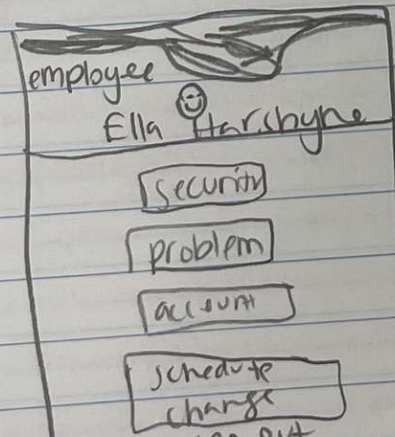 employee
Ella Harshyne
security
problem
account
schedule
change
out